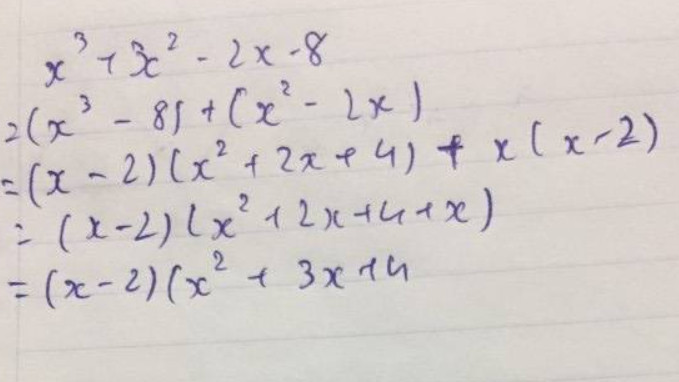 x³ + 3x² - 2x - 8
=(x³ - 8) + (x² - 2x)
=(x - 2)(x² + 2x + 4) + x(x - 2)
= (x-2)(x² + 2x + 4 + x)
= (x-2)(x² + 3x + 4